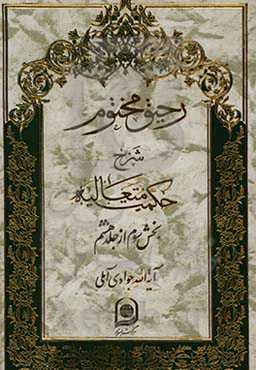 رحیق مختوم
شرح
حکمت متعالیه
بخش سوم از جلد هشتم
آیة الله جوادی آملی